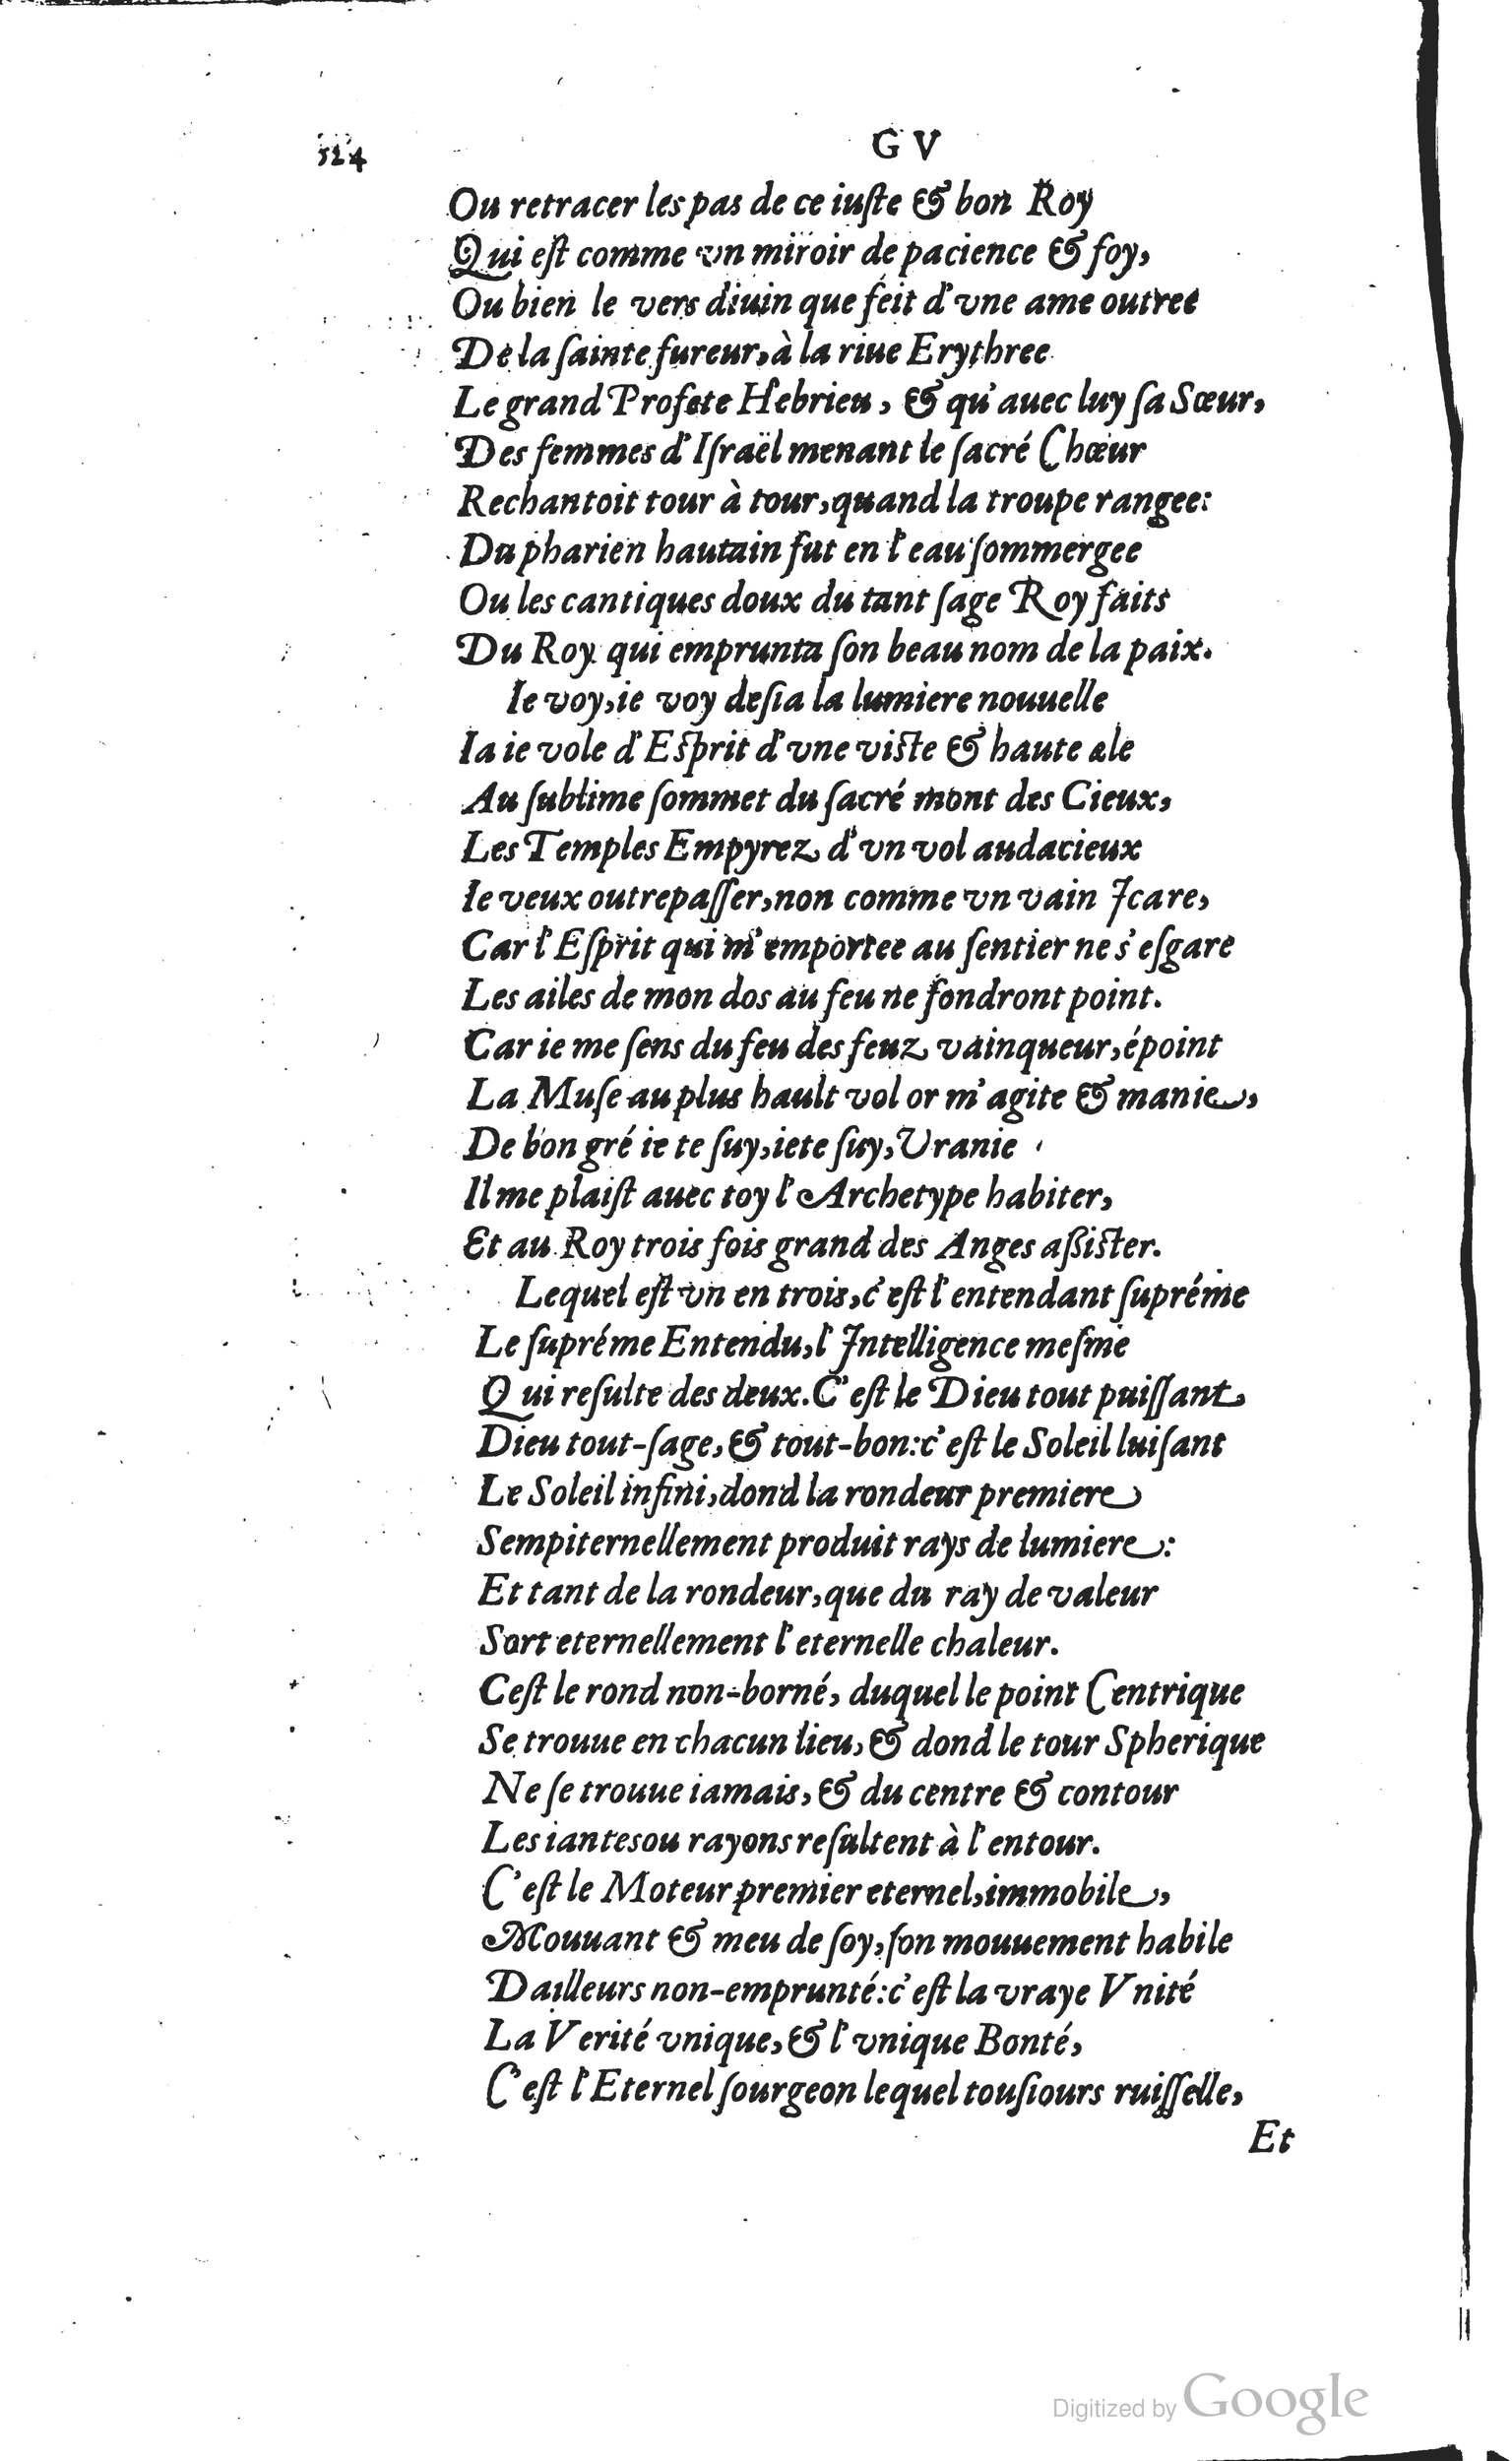 524
G V
Ou retracer les pas de ce iuſte & bon Roy
Qui eſt comme vn miroir de pacience & foy,
Ou bien le vers diuin que feit d'vne ame outree
De la ſainte fureur, à la riue Erythree
Le grand Profete Hebrieu, & qu'auec luy ſa Sœur,
Des femmes d'Iſraël menant le ſacré Chœur
Rechantoit tour à tour, quand la troupe rangee:
Du pharien hautain fut en l'eau ſommergee
Ou les cantiques doux du tant ſage Roy faits
Du Roy qui emprunta ſon beau nom de la paix.
Ie voy, ie voy deſia la lumiere nouuelle
Ia ie vole d'Eſprit d'vne viſte & haute ale
Au ſublime ſommet du ſacré mont des Cieux,
Les Temples Empyrez d'vn vol audacieux
Ie veux outrepaſſer, non comme vn vain Icare,
Car l'Eſprit qui m'emportee au ſentier ne s'eſgare
Les ailes de mon dos au feu ne fondront point.
Car ie me ſens du feu des feuz vainqueur, époint
La Muſe au plus hault vol or m'agite & manie,
De bon gré ie te ſuy, ie te ſuy, Vranie
Il me plaiſt auec toy l'Archetype habiter,
Et au Roy trois fois grand des Anges aßiſter.
Lequel eſt vn en trois, c'eſt l'entendant ſupréme
Le ſupréme Entendu, l'Intelligence meſme
Qui reſulte des deux. C'eſt le Dieu tout puiſſant
Dieu tout-ſage, & tout-bon: c'eſt le Soleil luiſant
Le Soleil infini, dond la rondeur premiere
Sempiternellement produit rays de lumiere:
Et tant de la rondeur, que du ray de valeur
Sort eternellement l'eternelle chaleur.
Ceſt le rond non-borné, duquel le point Centrique
Se trouue en chacun lieu, & dond le tour Spherique
Ne ſe trouue iamais, & du centre & contour
Les iantes ou rayons reſultent à l'entour.
C'eſt le Moteur premier eternel, immobile,
Mouuant & meu de ſoy, ſon mouuement habile
Dailleurs non-emprunté: c'eſt la vraye Vnité
La Verité vnique, & l'vnique Bonté,
C'eſt l'Eternel ſourgeon lequel touſiours ruiſſelle,
Et
Digitized by Google